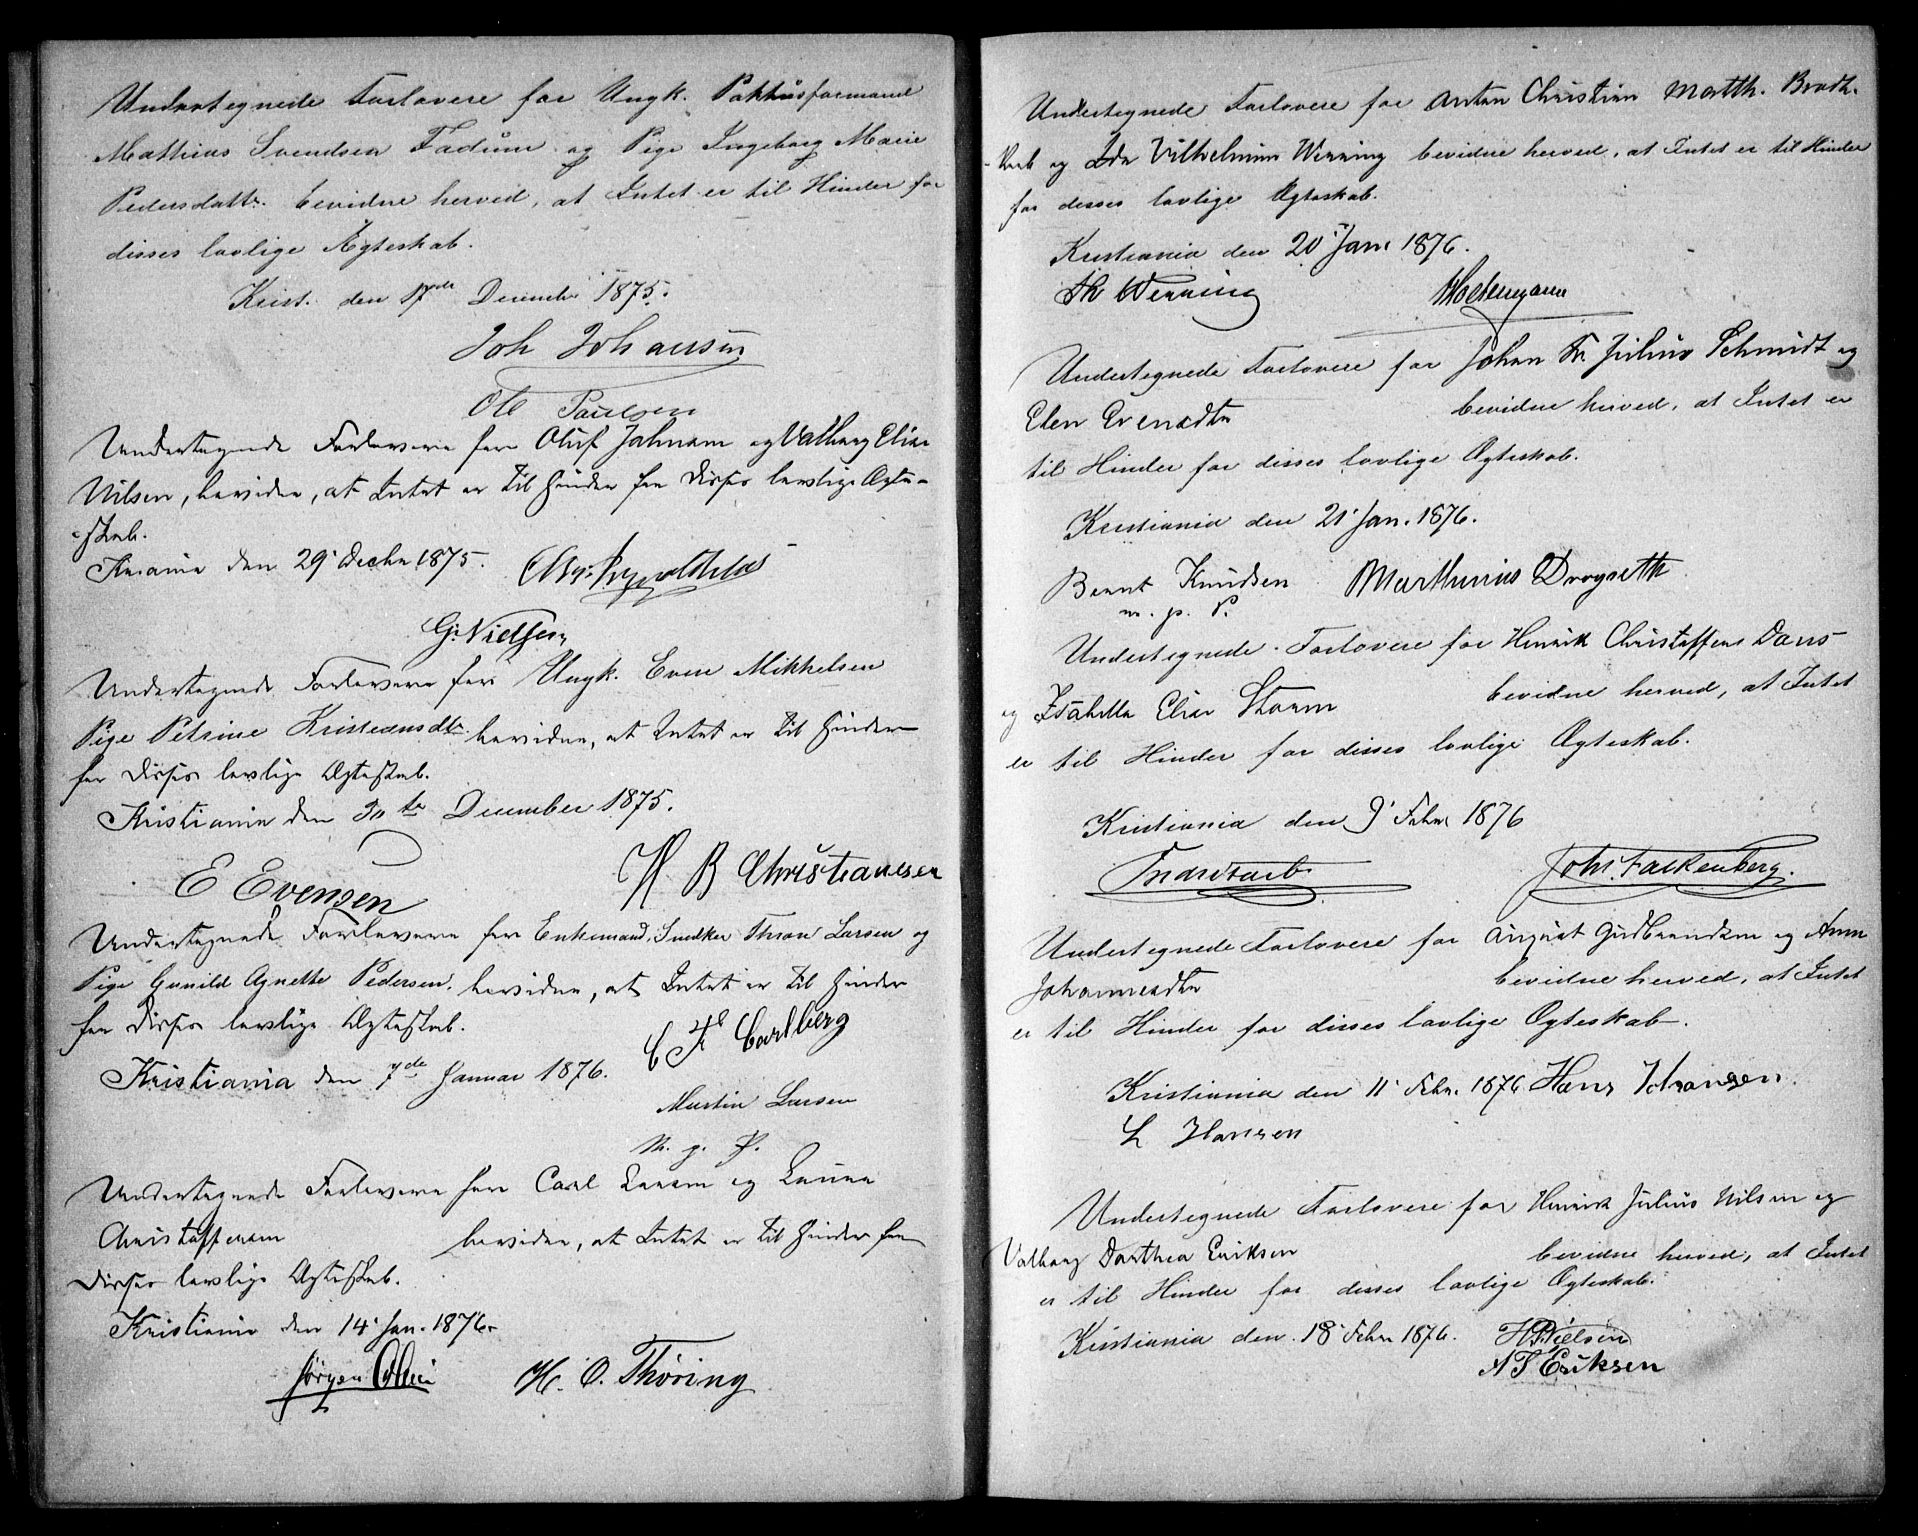 Undertegnede Forlovere for Ungk. Pakhusformand
Mathias Svendsen Fadum og Pige Ingeborg Marie
Pedersdattr. bevidne herved, at Intet er til Hinder for
disses lovlige Ægteskab.
Krist. den 17de December 1875.
Joh Johansen
Ole Paulsen
Undertegnede Forlovere for Oluf Johnsen og Valborg Elise
Nilsen, bevidne, at Intet er til Hinder for Disses lovlige Ægte-
-skab.
Kr.ania den 29' Decbr 1875.
G. Nielsen
Undertegnede Forlovere for Ungk. Even Mikkelsen
Pige Petrine Kristiansdtr bevidne, at Intet er til Hinder
for Disses lovlige Ægteskab.
Kristiania den 30te December 1875.
E Evensen H B Christiansen
Undertegnede Forlovere for Enkemand, Snedker Thron Larsen og
Pige Gunild Agnette Pedersen, bevidne, at Intet er til Hinder
for Disses lovlige Ægteskab.
Kristiania den 7de Januar 1876.
C F Carlberg
Martin Larsen
m. p. P.
Undertegnede Forlovere for Carl Larsen og Laura
Christoffersen bevidne, at Intet er til Hinder for
Disses lovlige Ægteskab.
Kristiania den 14' Jan. 1876.
Jørgen Olsen H. O. Thøring
Undertegnede Forlovere for Anton Christian Matth. Brodt-
-korb og Ida Vilhelmine Wenning bevidne herved, at Intet er til Hinder
for disses lovlige Ægteskab.
Kristiania den 20' Jan. 1876.
Th Wenning
Undertegnede Forlovere for Johan Fr. Julius Schmidt og
Elen Evensdtr bevidne herved, at Intet er
til Hinder for disses lovlige Ægteskab.
Kristiania den 21' Jan. 1876.
Bernt Knudsen Marthinius Drogseth
m. p. P.
Undertegnede Forlovere for Henrik Christoffer Dons
og Isabella Elise Storm bevidne herved, at Intet
er til Hinder for disses lovlige Ægteskab.
Kristiania den 9' Febr 1876
Joh. Falkenberg.
Undertegnede Forlovere for August Gudbrandsen og Anna
Johannesdtr bevidne herved, at Intet
er til Hinder for disses lovlige Ægteskab.
Kristiania den 11' Febr. 1876 Hans Johansen
L Hansen
Undertegnede Forlovere for Henrik Julius Nilsen og
Valborg Dorthea Eriksen bevidne herved, at Intet
er til Hinder for disses lovlige Ægteskab.
Kristiania den 18' Febr 1876. H Nielsen
A T Eriksen